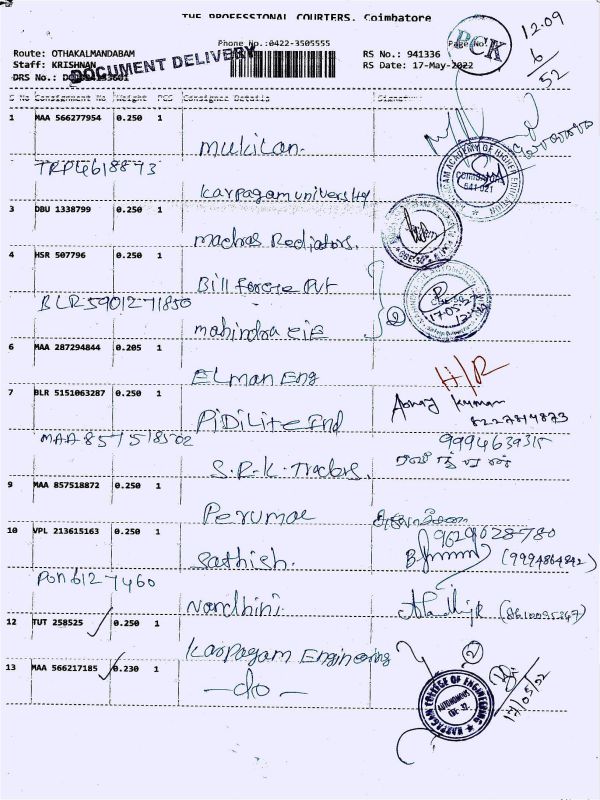 THE PROFESSIONAL COURIERS, Coimbatore
Phone No.:0422-3505555
Page No.
PCK
12.09
6
52
Route: OTHAKALMANDABAM
RS No.: 941336
Staff: KRISHNAN
RS Date: 17-May-2022
DRS No.:
DOCUMENT DELIVERY
S No Consignment No Weight PCS Consignee Details Signature
1 MAA 566277954 0.250 1
Mukilan.
TRP4618873
Karpagam university
3 DBU 1338799 0.250 1
Madras Rediators.
4 HSR 507796 0.250 1
Bill Forge Pvt
BLR5901271850
mahindra cie
2
17-05-22
6 MAA 287294844 0.205 1
Elman Eng
H/R
7 BLR 5151063287 0.250 1
PiDiLite Ind
Abhay Kumar
8227814873
MAA857518502
S.R.K. Traders.
9994639315
9 MAA 857518872 0.250 1
Perumal
10 VPL 213615163 0.250 1
9629028780
Sathish.
(9994864842)
Pon6127460
Nandhini.
(8610095347)
12 TUT 258525 0.250 1
Karpagam Engineering
2
13 MAA 566217185 0.230 1
-do-
KARPAGAM COLLEGE OF ENGINEERING
AUTONOMOUS
CBE-32
17/05/22